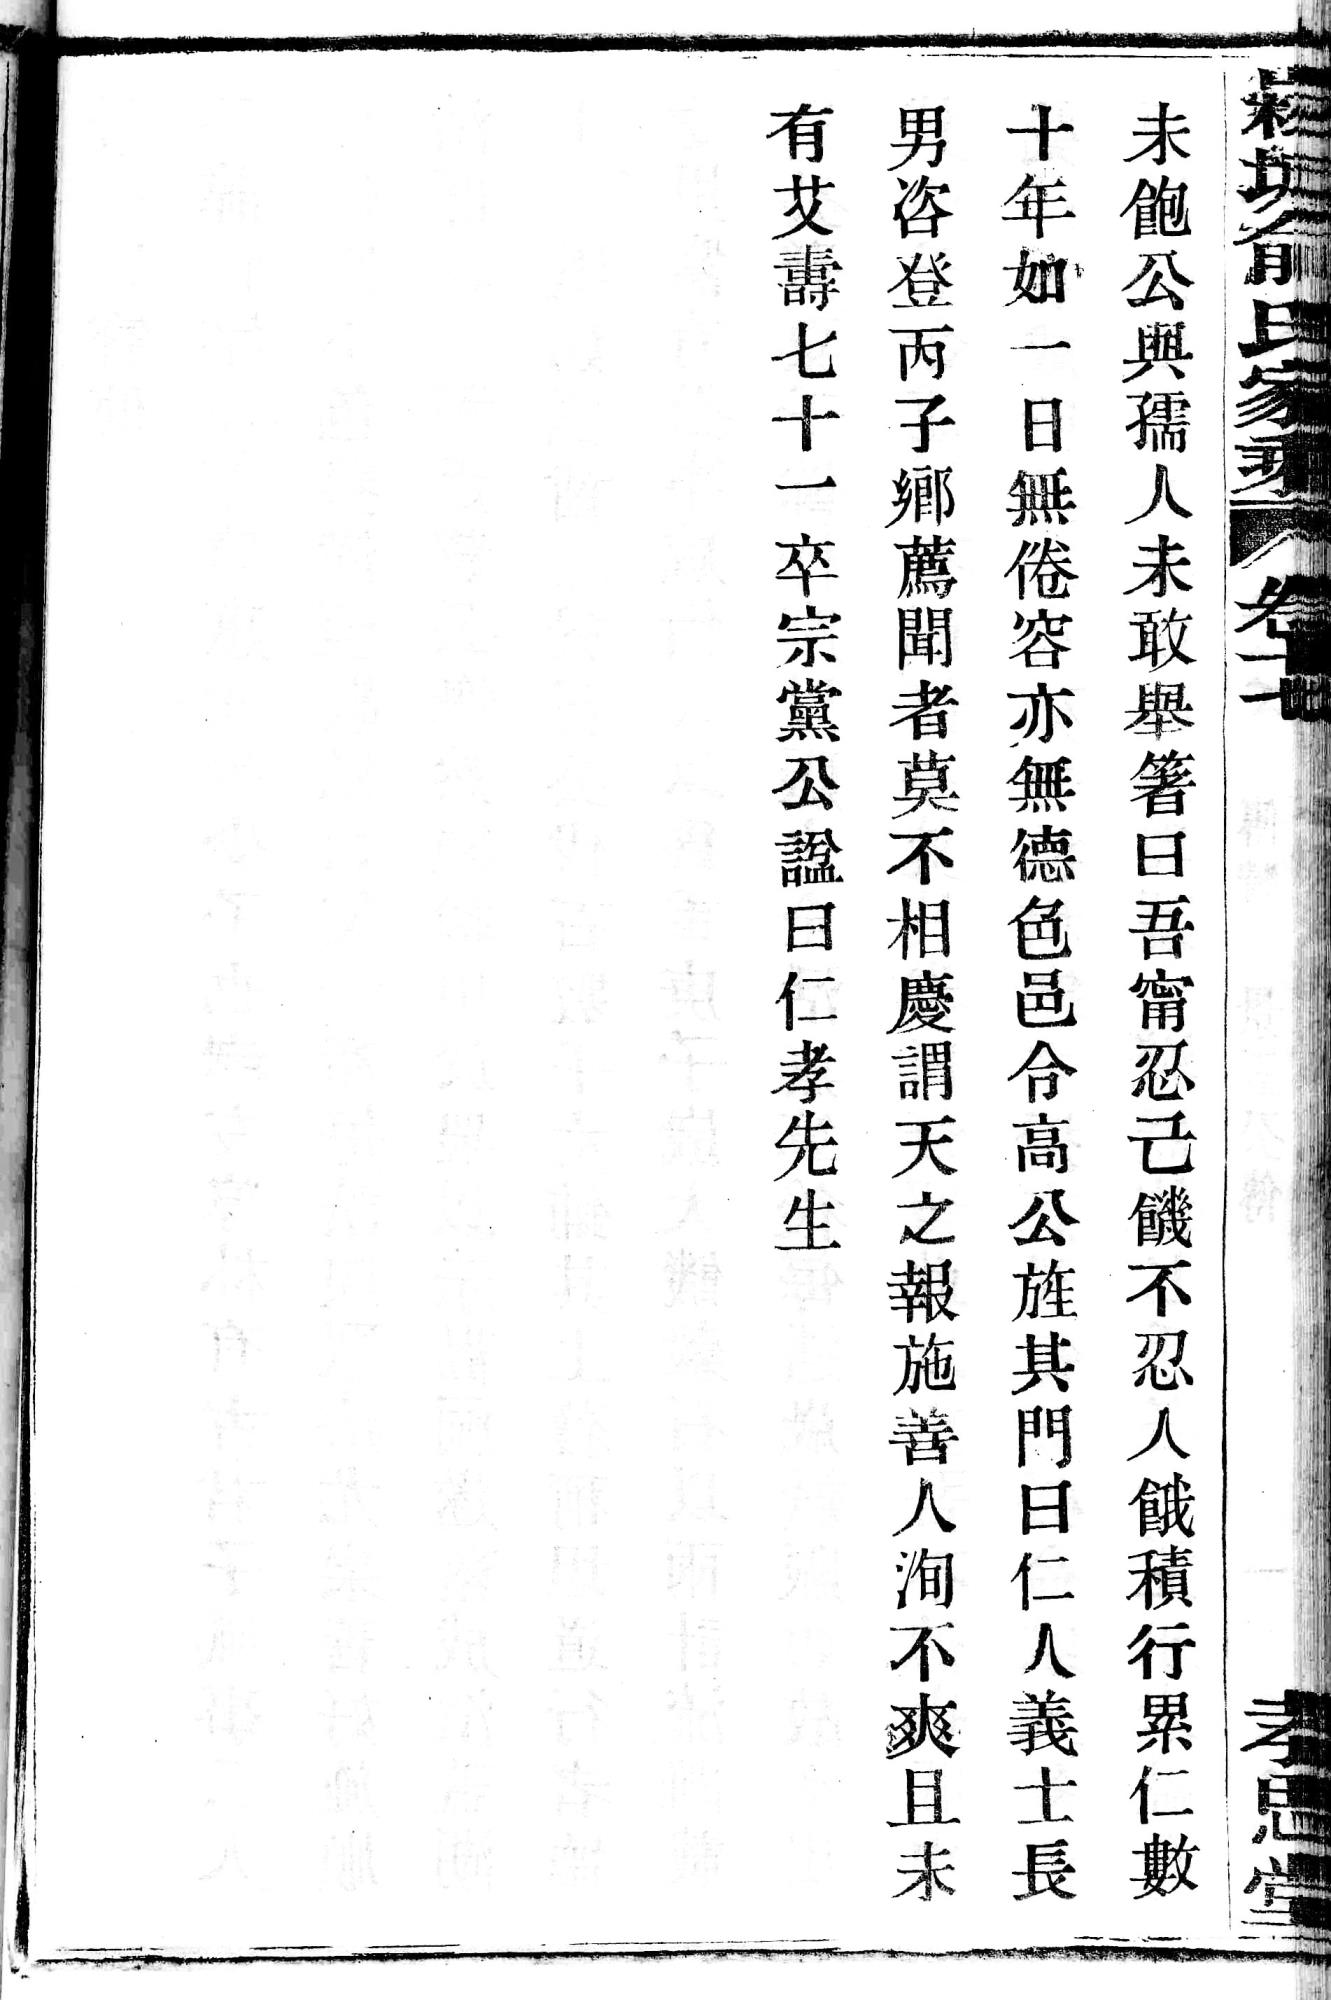 未飽公與孺人未敢舉箸曰吾甯忍己饑不忍人餓積行累仁數
十年如一日無倦容亦無德色邑令高公旌其門曰仁人義士長
男咨登丙子鄉薦聞者莫不相慶謂天之報施善人洵不爽且未
有艾壽七十一卒宗黨公諡曰仁孝先生
俞氏家乘 卷十七 孝思堂